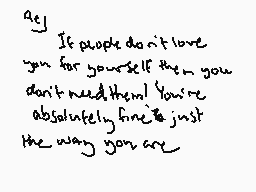 Rej
If people don't love
you for yourself them you
don't need them! You're
absolutely fine just
the way you are